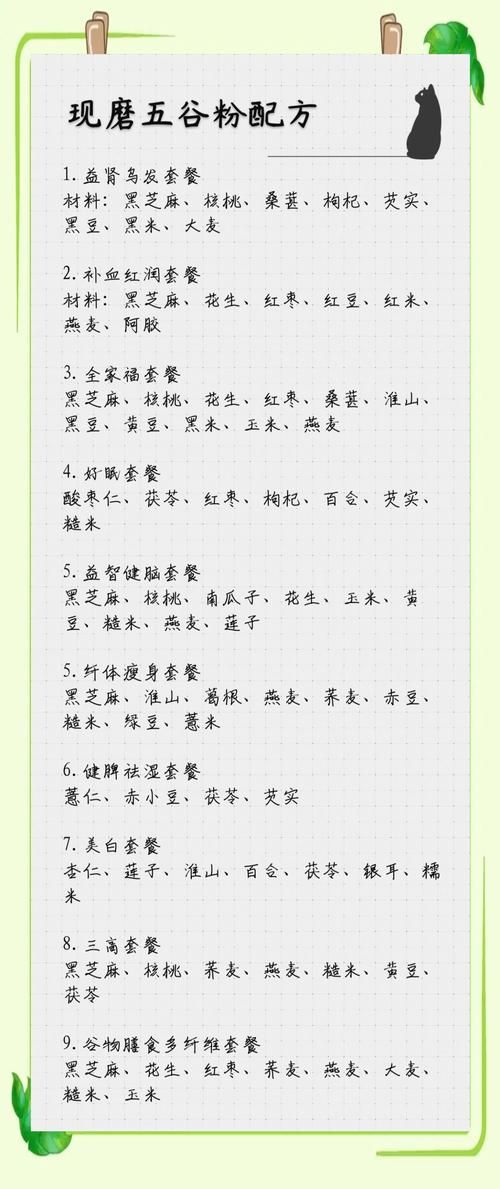 现磨五谷粉配方
1. 益肾乌发套餐
材料：黑芝麻、核桃、桑葚、枸杞、芡实、
黑豆、黑米、大麦
2. 补血红润套餐
材料：黑芝麻、花生、红枣、红豆、红米、
燕麦、阿胶
3. 全家福套餐
黑芝麻、核桃、花生、红枣、桑葚、淮山、
黑豆、黄豆、黑米、玉米、燕麦
4. 好眠套餐
酸枣仁、茯苓、红枣、枸杞、百合、芡实、
糙米
5. 益智健脑套餐
黑芝麻、核桃、南瓜子、花生、玉米、黄
豆、糙米、燕麦、莲子
5. 纤体瘦身套餐
黑芝麻、淮山、葛根、燕麦、荞麦、赤豆、
糙米、绿豆、薏米
6. 健脾祛湿套餐
薏仁、赤小豆、茯苓、芡实
7. 美白套餐
杏仁、莲子、淮山、百合、茯苓、银耳、糯
米
8. 三高套餐
黑芝麻、核桃、荞麦、燕麦、糙米、黄豆、
茯苓
9. 谷物膳食多纤维套餐
黑芝麻、花生、红枣、荞麦、燕麦、大麦、
糙米、玉米